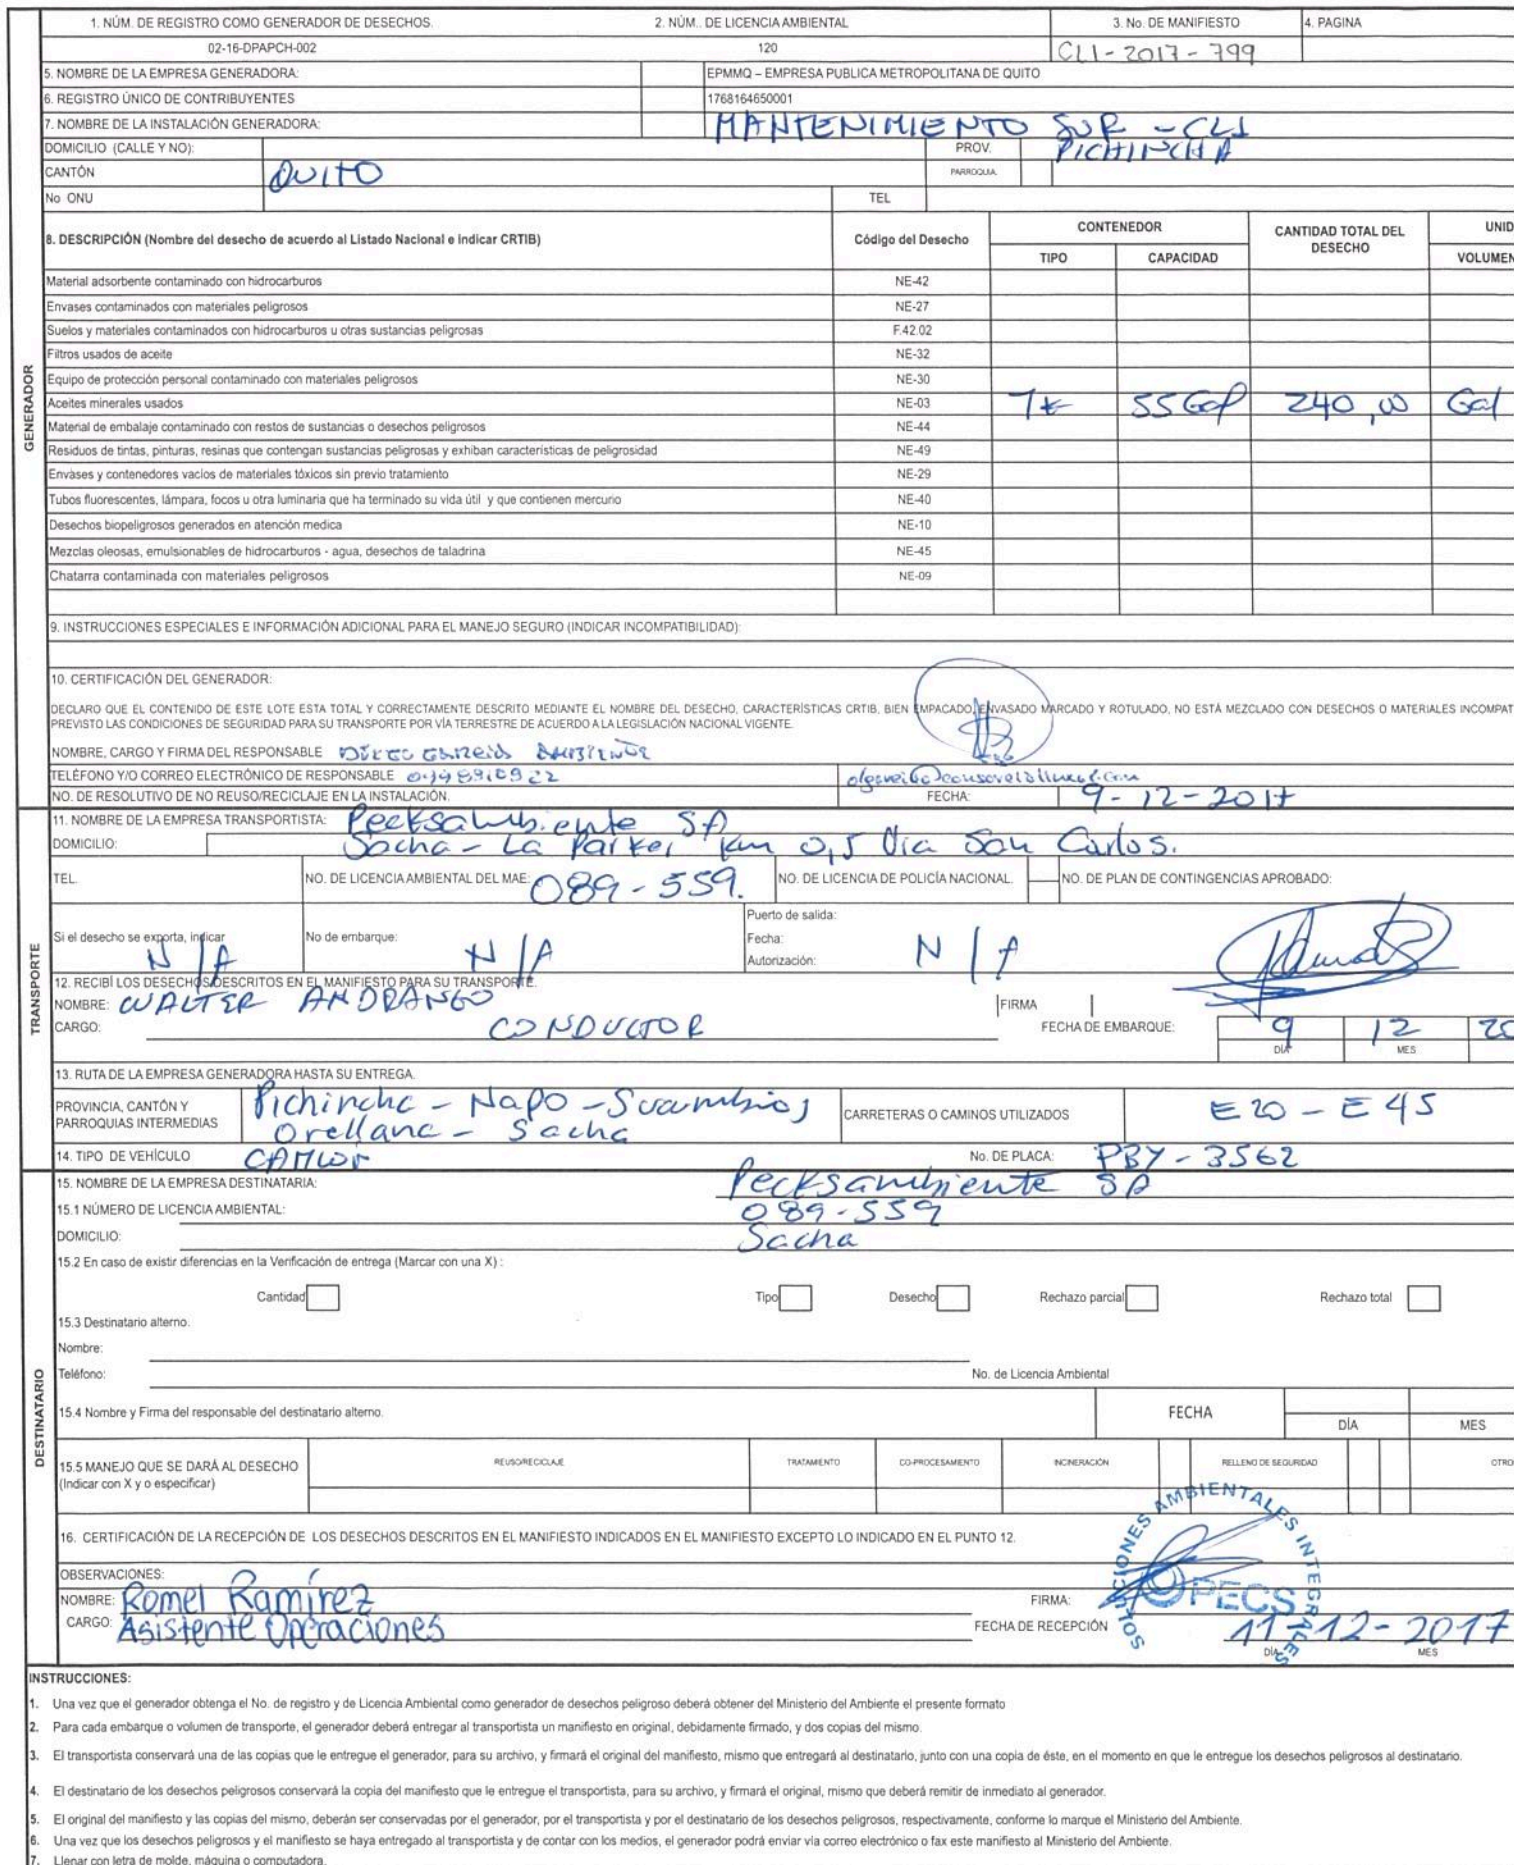 1. NÚM. DE REGISTRO COMO GENERADOR DE DESECHOS. 2. NÚM.. DE LICENCIA AMBIENTAL 3. No. DE MANIFIESTO 4. PAGINA
02-16-DPAPCH-002 120 CLI-2017-799
5. NOMBRE DE LA EMPRESA GENERADORA: EPMMQ – EMPRESA PUBLICA METROPOLITANA DE QUITO
6. REGISTRO ÚNICO DE CONTRIBUYENTES 1768164650001
7. NOMBRE DE LA INSTALACIÓN GENERADORA: MANTENIMIENTO SUR - CLI
DOMICILIO (CALLE Y NO): PROV. PICHINCHA
CANTÓN QUITO PARROQUIA.
No ONU TEL
8. DESCRIPCIÓN (Nombre del desecho de acuerdo al Listado Nacional e indicar CRTIB) Código del Desecho CONTENEDOR CANTIDAD TOTAL DEL DESECHO UNID
TIPO CAPACIDAD VOLUMEN
Material adsorbente contaminado con hidrocarburos NE-42
Envases contaminados con materiales peligrosos NE-27
Suelos y materiales contaminados con hidrocarburos u otras sustancias peligrosas F.42.02
Filtros usados de aceite NE-32
Equipo de protección personal contaminado con materiales peligrosos NE-30
Aceites minerales usados NE-03 55 Gal 240,00 Gal
Material de embalaje contaminado con restos de sustancias o desechos peligrosos NE-44
Residuos de tintas, pinturas, resinas que contengan sustancias peligrosas y exhiban características de peligrosidad NE-49
Envases y contenedores vacíos de materiales tóxicos sin previo tratamiento NE-29
Tubos fluorescentes, lámpara, focos u otra luminaria que ha terminado su vida útil y que contienen mercurio NE-40
Desechos biopeligrosos generados en atención medica NE-10
Mezclas oleosas, emulsionables de hidrocarburos - agua, desechos de taladrina NE-45
Chatarra contaminada con materiales peligrosos NE-09
9. INSTRUCCIONES ESPECIALES E INFORMACIÓN ADICIONAL PARA EL MANEJO SEGURO (INDICAR INCOMPATIBILIDAD):
10. CERTIFICACIÓN DEL GENERADOR:
DECLARO QUE EL CONTENIDO DE ESTE LOTE ESTA TOTAL Y CORRECTAMENTE DESCRITO MEDIANTE EL NOMBRE DEL DESECHO, CARACTERÍSTICAS CRTIB, BIEN EMPACADO, ENVASADO MARCADO Y ROTULADO, NO ESTÁ MEZCLADO CON DESECHOS O MATERIALES INCOMPAT
PREVISTO LAS CONDICIONES DE SEGURIDAD PARA SU TRANSPORTE POR VÍA TERRESTRE DE ACUERDO A LA LEGISLACIÓN NACIONAL VIGENTE.
NOMBRE, CARGO Y FIRMA DEL RESPONSABLE
TELÉFONO Y/O CORREO ELECTRÓNICO DE RESPONSABLE
NO. DE RESOLUTIVO DE NO REUSO/RECICLAJE EN LA INSTALACIÓN. FECHA: 9-12-2017
11. NOMBRE DE LA EMPRESA TRANSPORTISTA: Pecksambiente SA
DOMICILIO: Sacha - La Parker km 0,5 Via San Carlos.
TEL. NO. DE LICENCIA AMBIENTAL DEL MAE: 089-559. NO. DE LICENCIA DE POLICÍA NACIONAL. NO. DE PLAN DE CONTINGENCIAS APROBADO:
Puerto de salida:
Si el desecho se exporta, indicar N/A No de embarque: N/A Fecha: N/A
Autorización:
12. RECIBÍ LOS DESECHOS DESCRITOS EN EL MANIFIESTO PARA SU TRANSPORTE.
NOMBRE: WALTER ANDRANGO FIRMA
CARGO: CONDUCTOR FECHA DE EMBARQUE: 9 12 20
DÍA MES
13. RUTA DE LA EMPRESA GENERADORA HASTA SU ENTREGA.
PROVINCIA, CANTÓN Y PARROQUIAS INTERMEDIAS Pichincha - Napo - Sucumbios CARRETERAS O CAMINOS UTILIZADOS E20 - E45
Orellana - Sacha
14. TIPO DE VEHÍCULO CAMION No. DE PLACA: PBY-3562
15. NOMBRE DE LA EMPRESA DESTINATARIA: Pecksambiente SA
15.1 NÚMERO DE LICENCIA AMBIENTAL: 089-559
DOMICILIO: Sacha
15.2 En caso de existir diferencias en la Verificación de entrega (Marcar con una X) :
Cantidad Tipo Desecho Rechazo parcial Rechazo total
15.3 Destinatario alterno.
Nombre:
Teléfono: No. de Licencia Ambiental
15.4 Nombre y Firma del responsable del destinatario alterno. FECHA
DÍA MES
15.5 MANEJO QUE SE DARÁ AL DESECHO REUSO/RECICLAJE TRATAMIENTO CO-PROCESAMIENTO INCINERACIÓN RELLENO DE SEGURIDAD OTRO
(Indicar con X y o especificar)
16. CERTIFICACIÓN DE LA RECEPCIÓN DE LOS DESECHOS DESCRITOS EN EL MANIFIESTO INDICADOS EN EL MANIFIESTO EXCEPTO LO INDICADO EN EL PUNTO 12.
OBSERVACIONES:
NOMBRE: Romel Ramírez FIRMA:
CARGO: Asistente Operaciones FECHA DE RECEPCIÓN 11-12-2017
DÍA MES
SOLUCIONES AMBIENTALES INTEGRALES
PECS
GENERADOR
TRANSPORTE
DESTINATARIO
INSTRUCCIONES:
1. Una vez que el generador obtenga el No. de registro y de Licencia Ambiental como generador de desechos peligroso deberá obtener del Ministerio del Ambiente el presente formato
2. Para cada embarque o volumen de transporte, el generador deberá entregar al transportista un manifiesto en original, debidamente firmado, y dos copias del mismo.
3. El transportista conservará una de las copias que le entregue el generador, para su archivo, y firmará el original del manifiesto, mismo que entregará al destinatario, junto con una copia de éste, en el momento en que le entregue los desechos peligrosos al destinatario.
4. El destinatario de los desechos peligrosos conservará la copia del manifiesto que le entregue el transportista, para su archivo, y firmará el original, mismo que deberá remitir de inmediato al generador.
5. El original del manifiesto y las copias del mismo, deberán ser conservadas por el generador, por el transportista y por el destinatario de los desechos peligrosos, respectivamente, conforme lo marque el Ministerio del Ambiente.
6. Una vez que los desechos peligrosos y el manifiesto se haya entregado al transportista y de contar con los medios, el generador podrá enviar vía correo electrónico o fax este manifiesto al Ministerio del Ambiente.
7. Llenar con letra de molde, máquina o computadora.